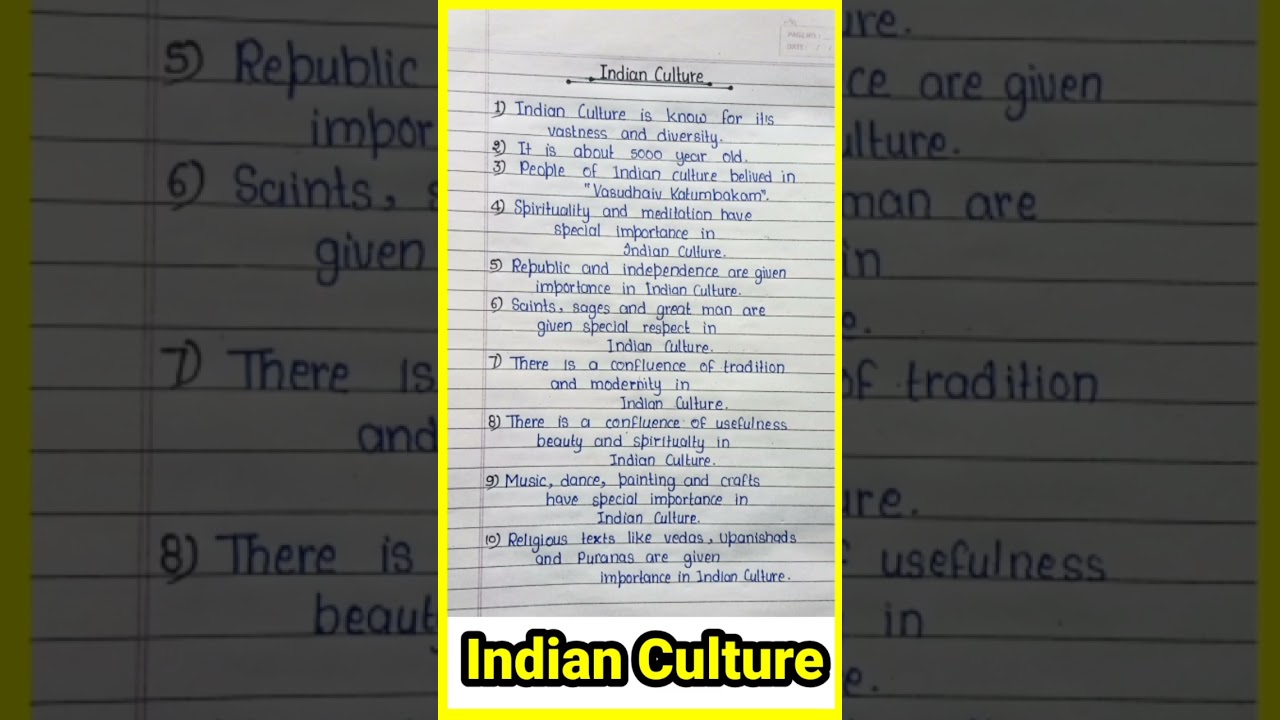 PAGE NO.:
DATE: / /
Indian Culture
1) Indian Culture is know for it's
vastness and diversity.
2) It is about 5000 year old.
3) People of Indian culture belived in
"Vasudhaiv Katumbakam".
4) Spirituality and meditation have
special importance in
Indian Culture.
5) Republic and independence are given
importance in Indian Culture.
6) Saints, sages and great man are
given special respect in
Indian Culture.
7) There is a confluence of tradition
and modernity in
Indian Culture.
8) There is a confluence of usefulness
beauty and spiritualty in
Indian Culture.
9) Music, dance, painting and crafts
have special importance in
Indian Culture.
10) Religious texts like vedas, Upanishads
and Puranas are given
importance in Indian Culture.
Indian Culture
5) Republic
impor
6) Saints, s
given
7) There is
and
8) There is
beaut
ure.
ce are given
ulture.
man are
in
e.
of tradition
ure.
f usefulness
in
e.